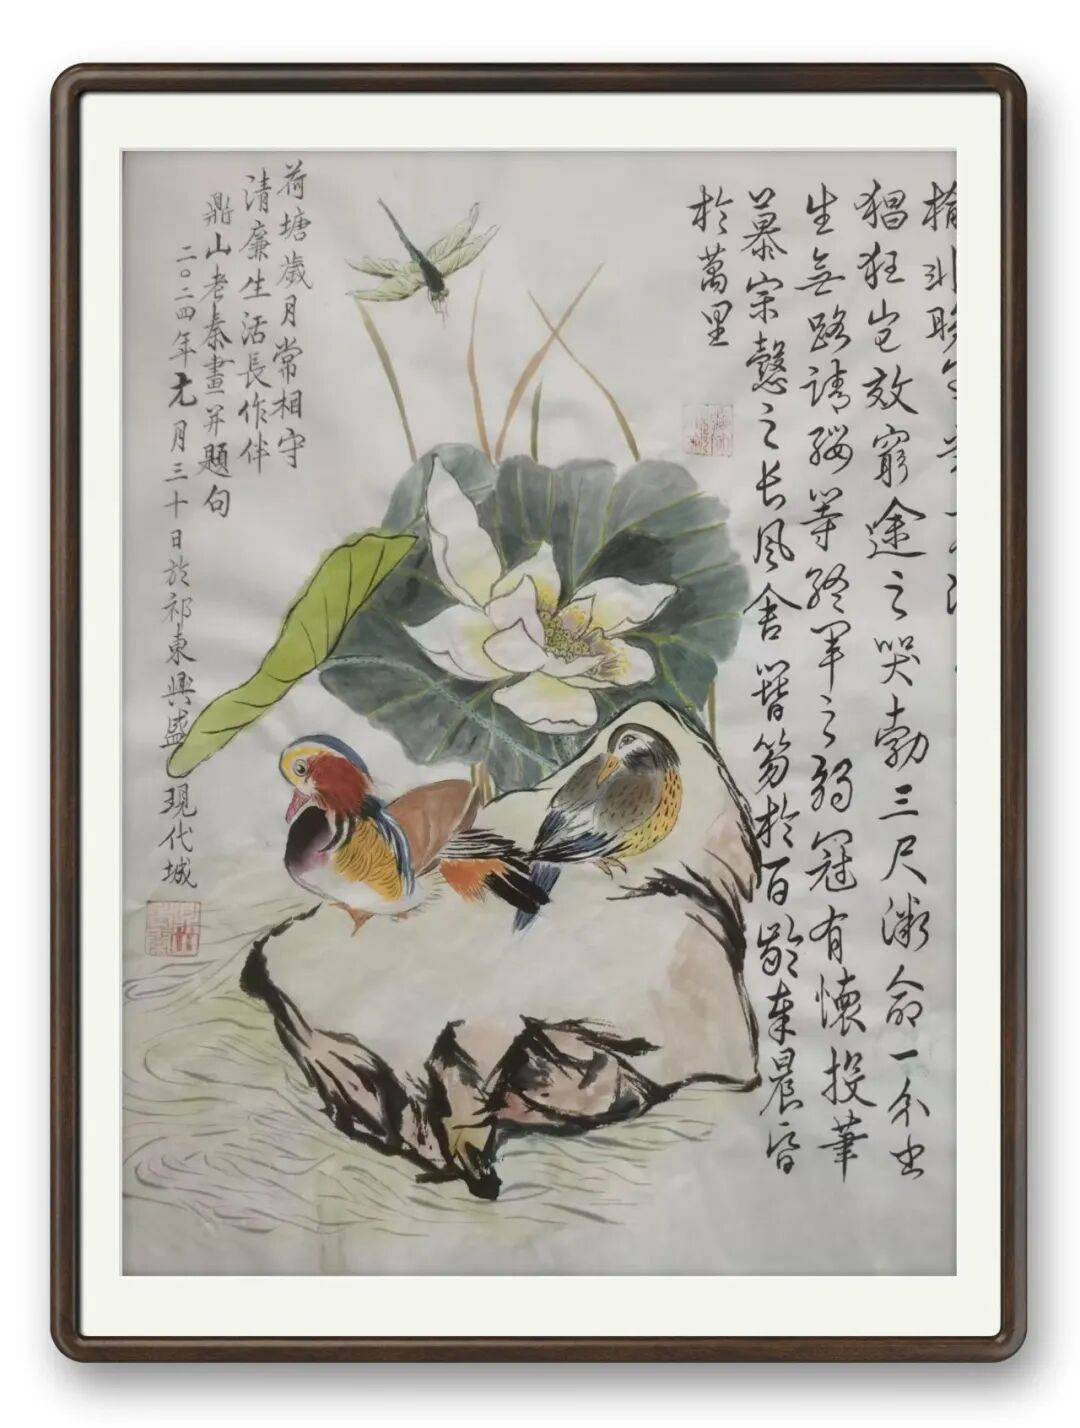 榆非晚
猖狂岂效窮途之哭勃三尺微命一介书
生無路請纓等終軍之弱冠有懷投筆
慕宗慤之长风舍簪笏於百齡奉晨昏
於萬里
荷塘歲月常相守
清廉生活長作伴
鼎山老秦畫并題句
二〇二四年元月三十日於祁東興盛現代城